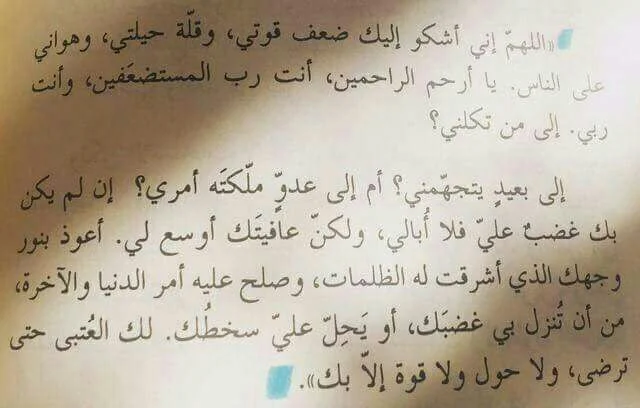 «اللهمّ إني أشكو إليك ضعف قوتي، وقلّة حيلتي، وهواني
على الناس. يا أرحم الراحمين، أنت رب المستضعَفين، وأنت
ربي. إلى من تكلني؟
إلى بعيدٍ يتجهّمني؟ أم إلى عدوٍّ ملّكتَه أمري؟ إن لم يكن
بك غضبٌ عليّ فلا أُبالي، ولكنّ عافيتَك أوسع لي. أعوذ بنور
وجهك الذي أشرقت له الظلمات، وصلح عليه أمر الدنيا والآخرة،
من أن تُنزل بي غضبَك، أو يَحِلّ عليّ سخطُك. لك العُتبى حتى
ترضى، ولا حول ولا قوة إلاّ بك».